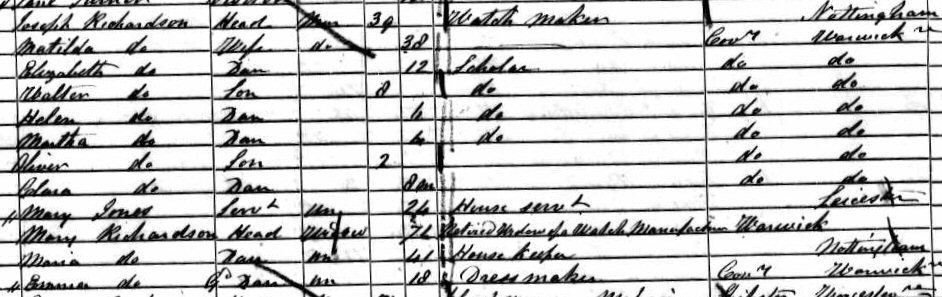 Joseph Richardson Head Mar 39 Watch maker Nottingham
Matilda do Wife do 38 Covy Warwick
Elizabeth do Dau 12 Scholar do do
Walter do Son 8 do do do
Helen do Dau 6 do do do
Martha do Dau 4 do do do
Oliver do Son 2 do do
Clara do Dau 8 m do do
Mary Jones Servt un 24 House servt Leicester
Mary Richardson Head Widow 72 Retired Widow of a Watch Manufacturer Warwick
Maria do Dau un 41 House keeper Nottingham
Emma do Gd Dau un 18 Dress maker Covy Warwick